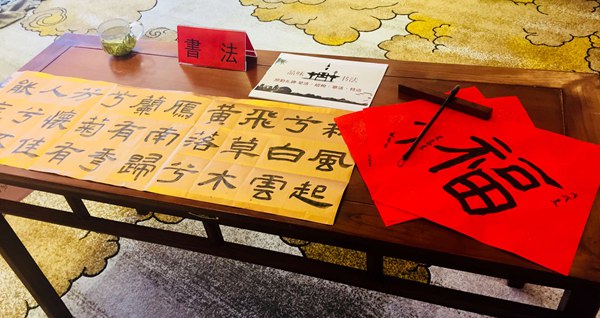 書法
品味
书法
秋風起
兮白雲
飛草木
黃落兮
鴈南歸
蘭有秀
兮菊有
芳懷佳
人兮不
能忘
福